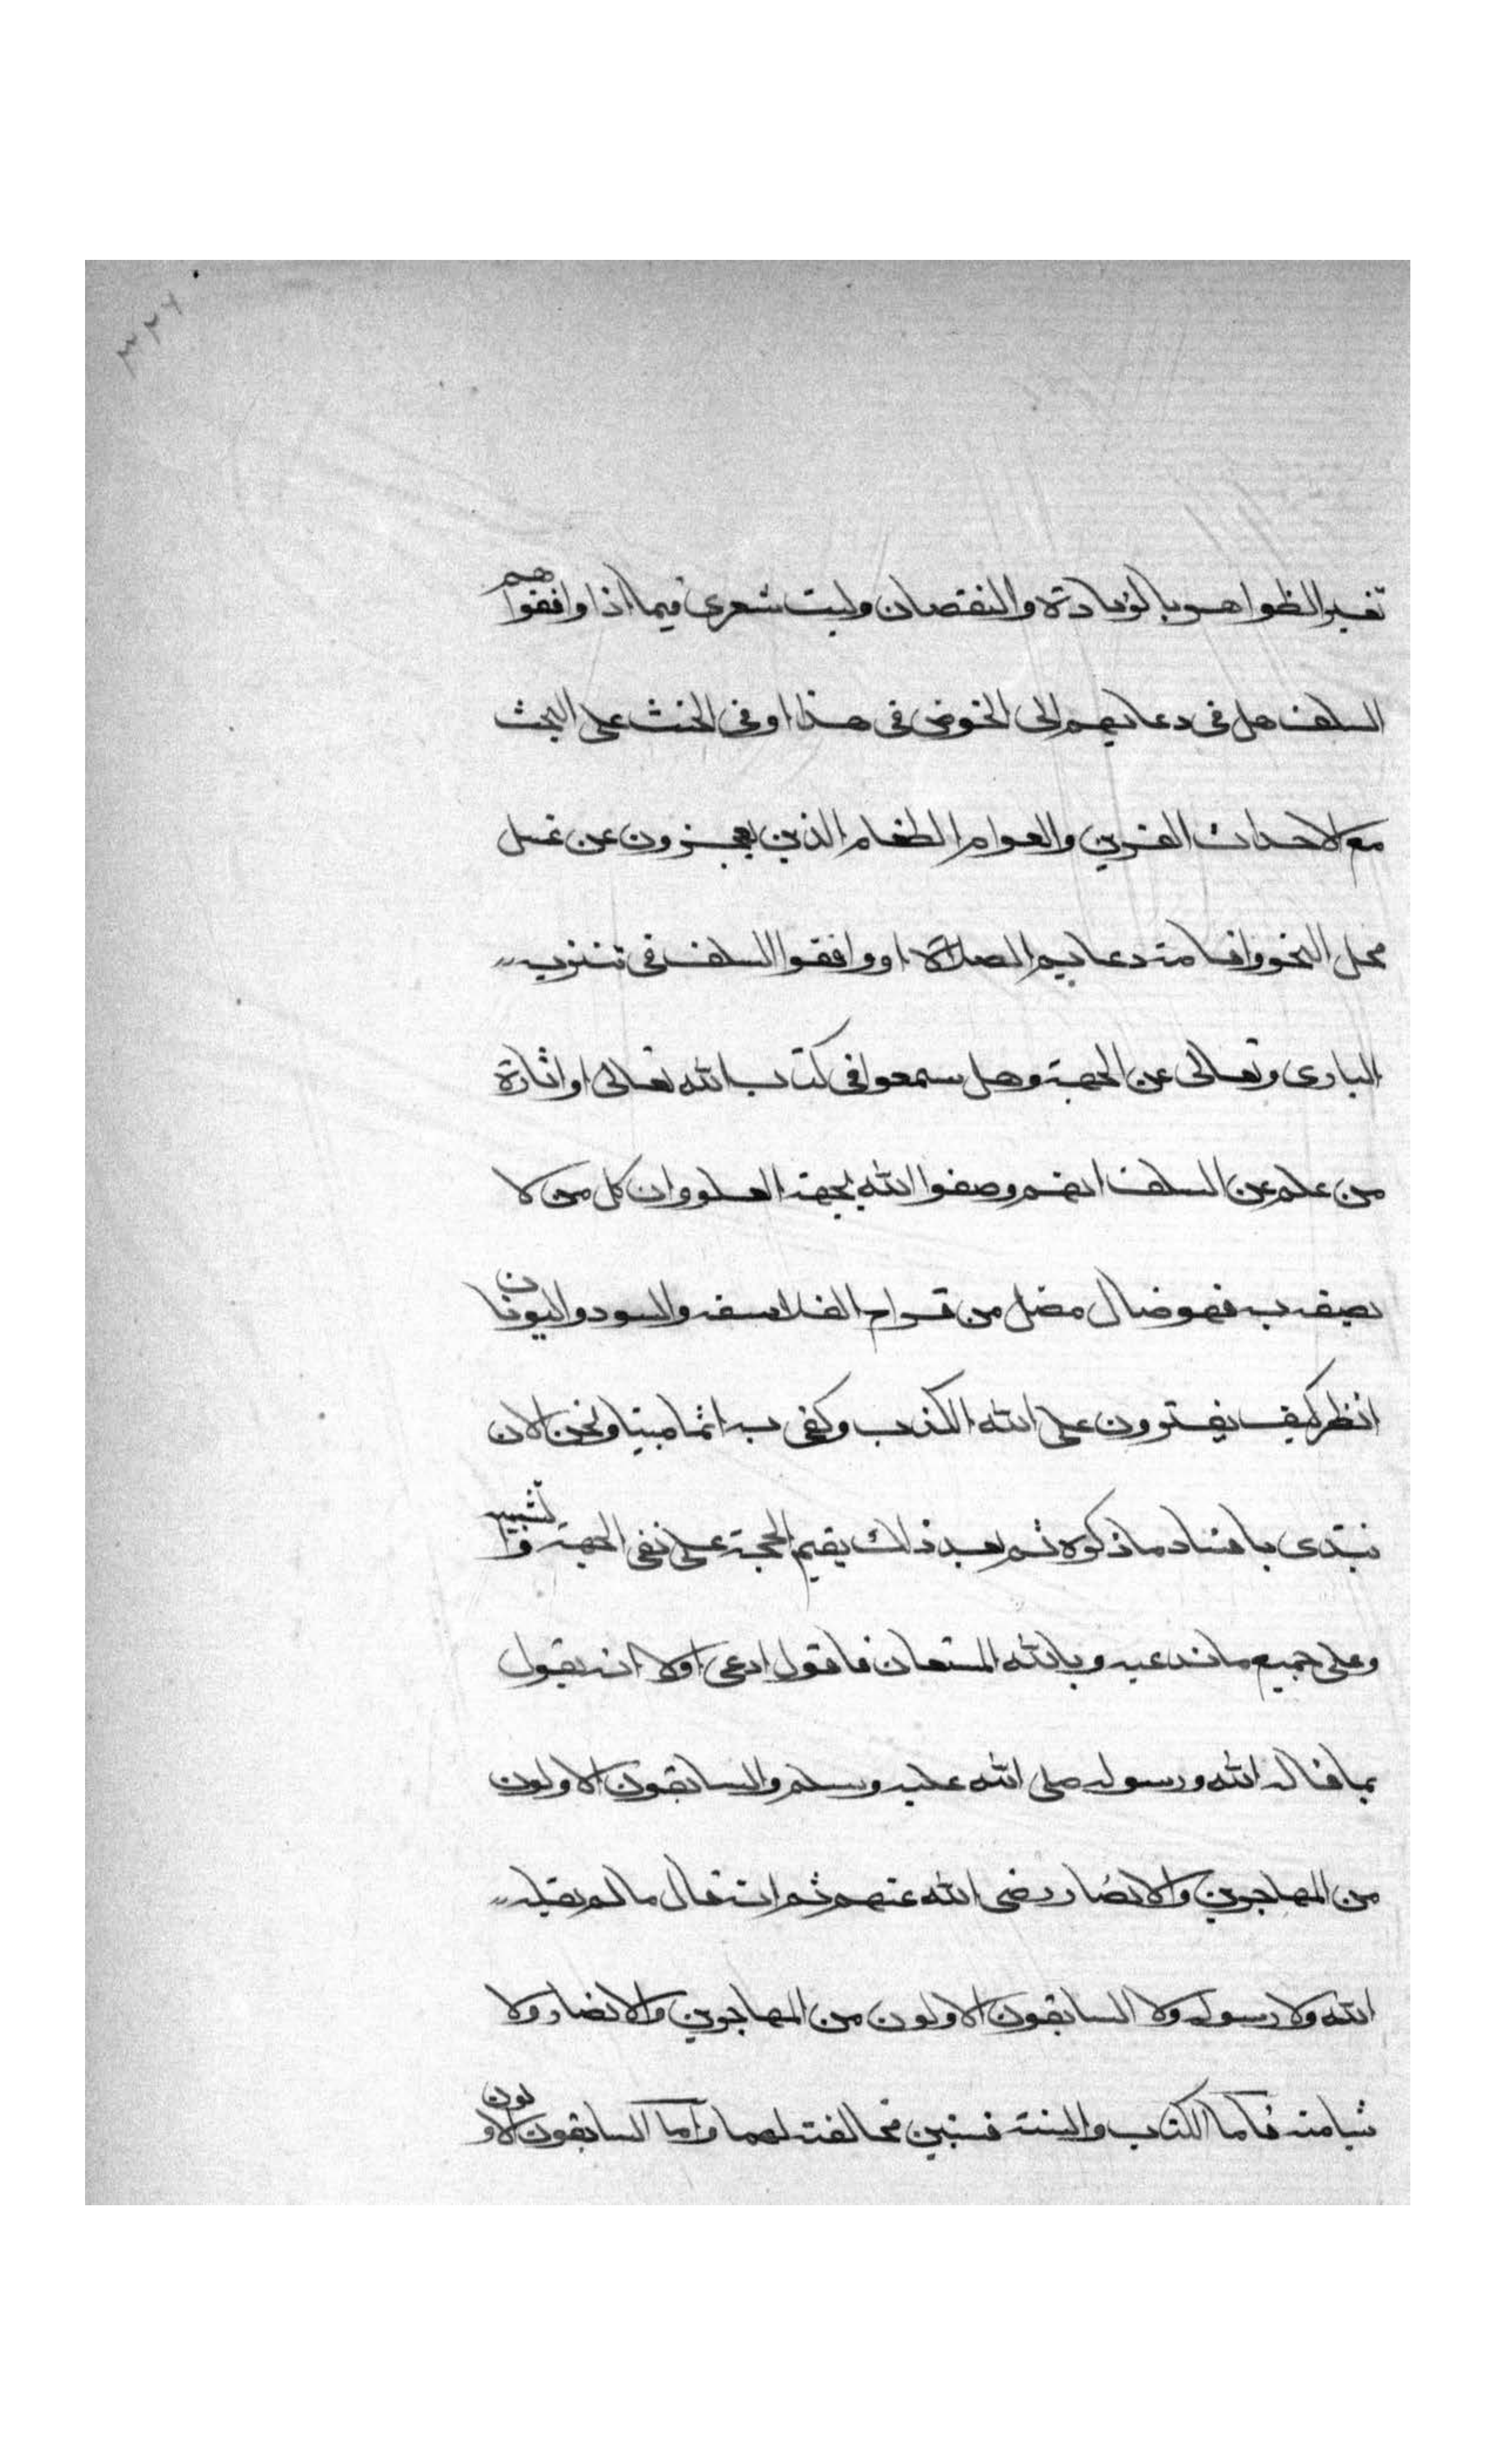 ٣٢٦
تغيير الظواهر بالزيادة والنقصان وليت شعرى فيما اذا وافقوا هم
السلف هل فى دعايهم الى الخوض فى هذا او فى الحث على البحث
مع الاحداث الغرين والعوام الطغام الذين يعجزون عن غسل
محل النجو واقامة دعايم الصلاة او وافقوا السلف فى تنزيه
البارى وتعالى عن الجهة وهل سمعوا فى كتاب الله تعالى او اثارة
من علم عن السلف انهم وصفوا الله بجهة العلو وان كل من لا
يصفه به فهو ضال مضل من قراح الفلاسفه والهنود واليونان
انظر كيف يفترون على الله الكذب وكفى به اثما مبينا ونحن الان
نبتدى بافساد ما ذكره ثم بعد ذلك يقيم الحجة على نفى الجهة والتشبيه
وعلى جميع ما ندعيه وبالله المستعان فاقول ادعى اولا انه يقول
بما قاله الله ورسوله صلى الله عليه وسلم والسابقون الاولون
من المهاجرين والانصار رضى الله عنهم ثم انه قال ما لم يقله
الله ولا رسوله ولا السابقون الاولون من المهاجرين والانصار ولا
شيا منه فاما الكتاب والسنة فسنبين مخالفته لهما واما السابقون الاولون